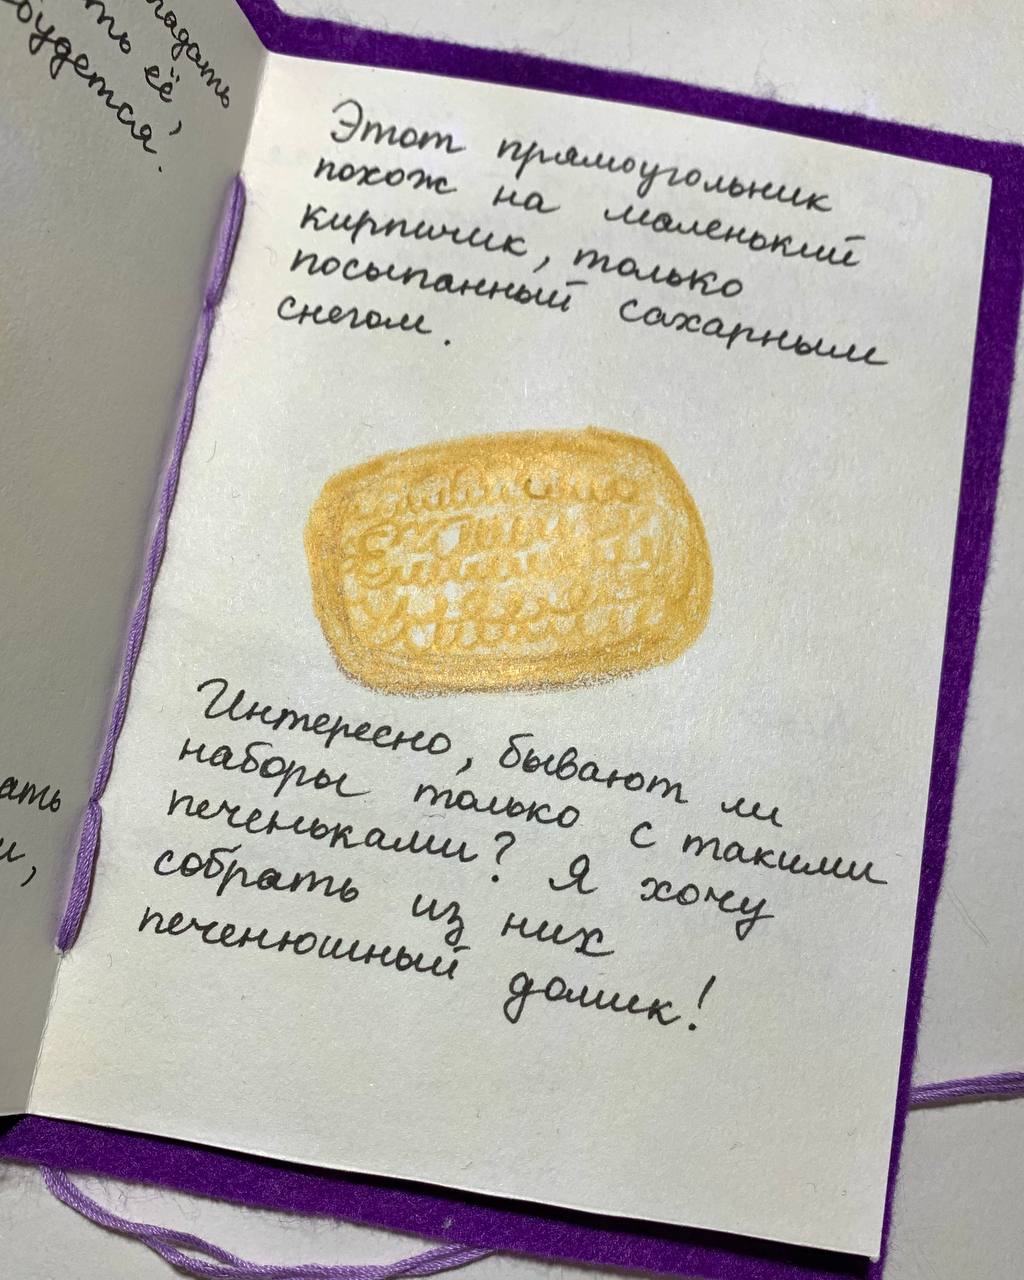 ть её
Этот прямоугольник
похож на маленький
кирпичик, только
посыпанный сахарным
снегом.
Интересно, бывают ли
наборы только с такими
печеньками? Я хочу
собрать из них
печенюшный домик!